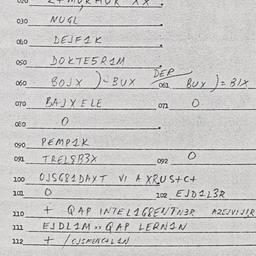 030 NUGL
040 DEJF1K
050 DOKTE5R1M
060 BOJX )=BUX DEP 061 BUX )=BIX
070 BAJXELE 071 O
080 O
090 PEMP1K
091 TREL8B3X 092 O
100 OJSG81DAXT VI A XRUS+C+
101 O 102 EJD1L3R
110 + QAP INTEL1G8ENTN3R
111 EJDL1M QAP LERN1N
112 +